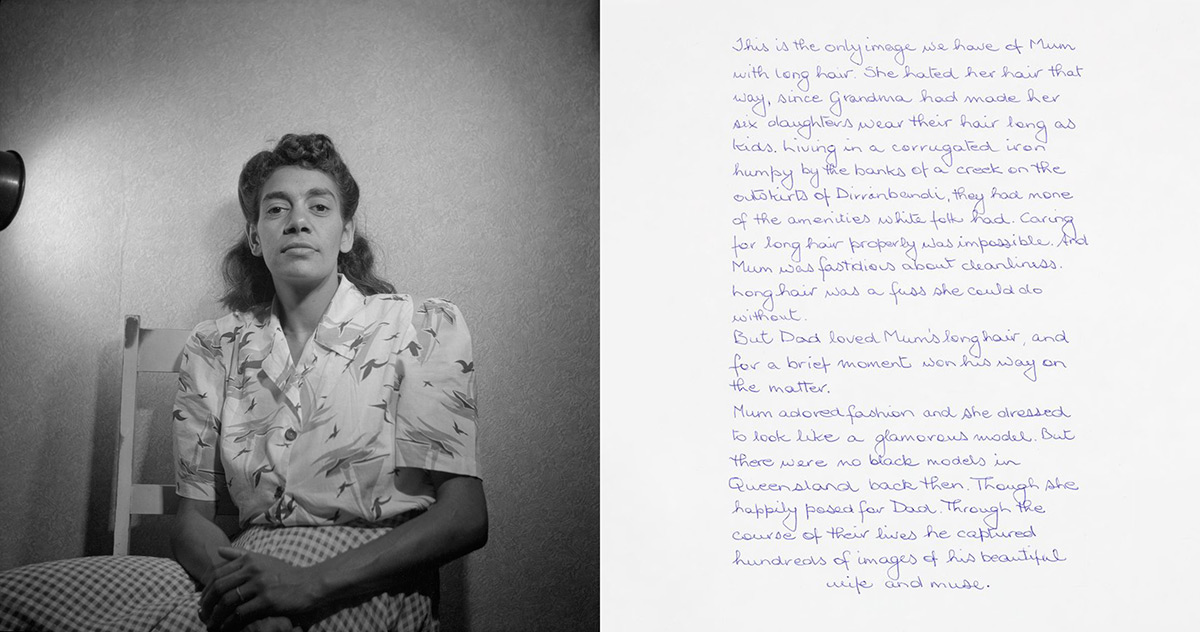 This is the only image we have of Mum
with long hair. She hated her hair that
way, since Grandma had made her
six daughters wear their hair long as
kids. Living in a corrugated iron
humpy by the banks of a creek on the
outskirts of Dirranbandi, they had none
of the amenities white folk had. Caring
for long hair properly was impossible. And
Mum was fastidious about cleanliness.
Long hair was a fuss she could do
without.
But Dad loved Mum's long hair, and
for a brief moment won his way on
the matter.
Mum adored fashion and she dressed
to look like a glamorous model. But
there were no black models in
Queensland back then. Though she
happily posed for Dad. Through the
course of their lives he captured
hundreds of images of his beautiful
wife and muse.